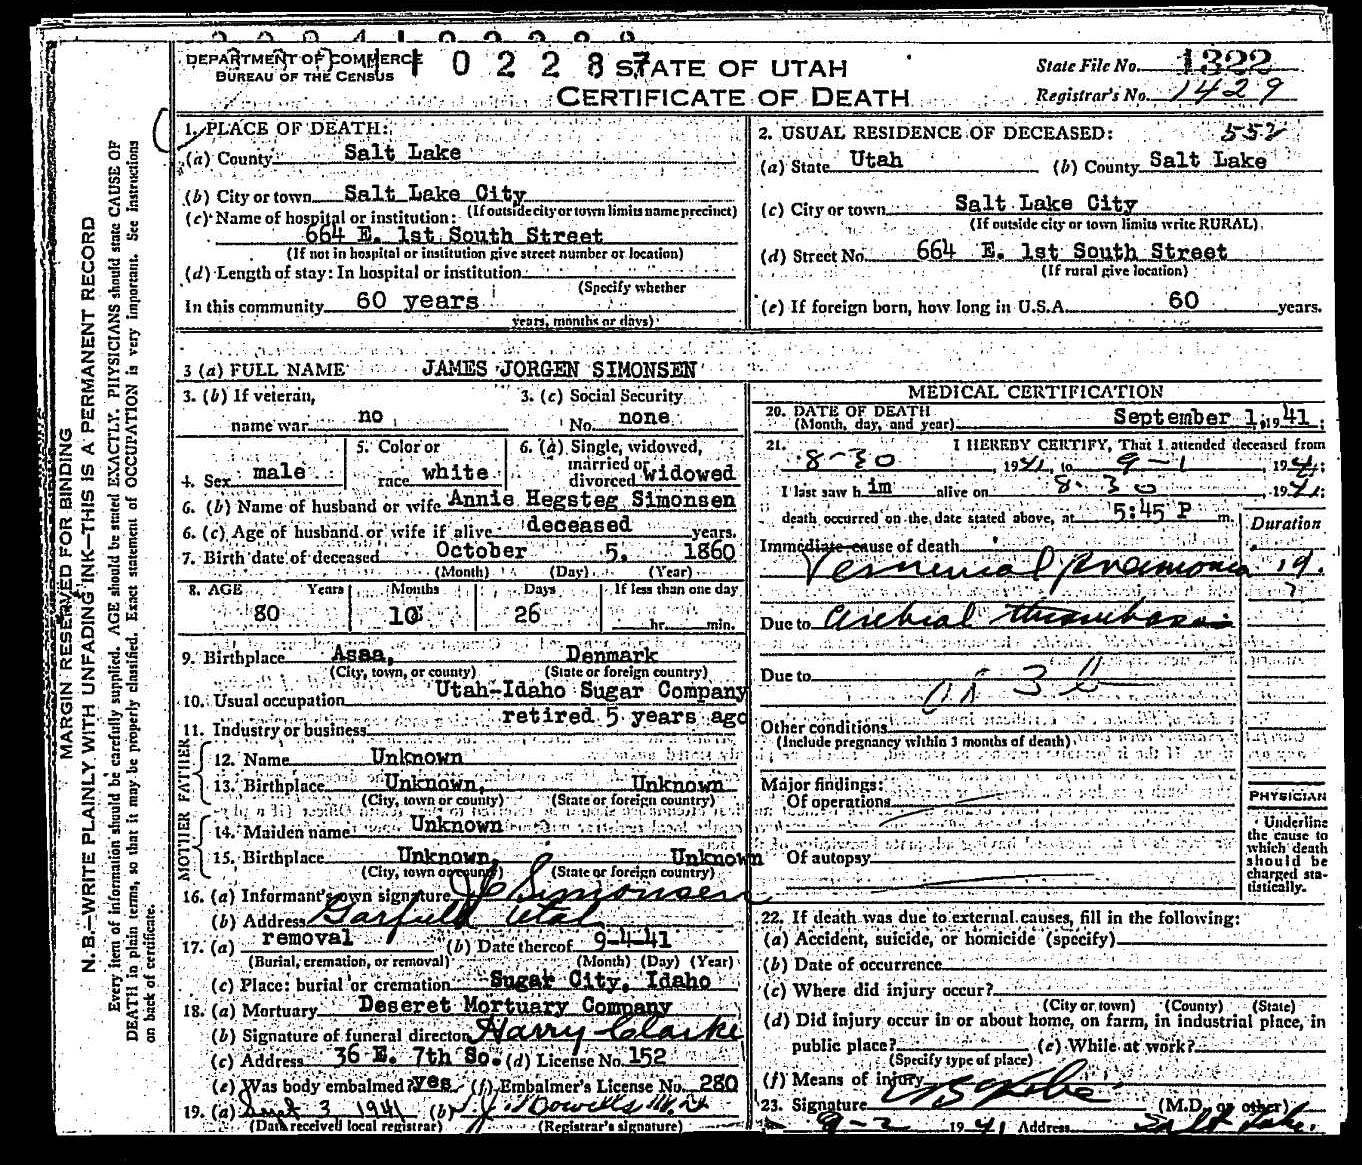 DEPARTMENT OF COMMERCE
BUREAU OF THE CENSUS
102287
STATE OF UTAH
CERTIFICATE OF DEATH
State File No. 1322
Registrar's No. 1429
MARGIN RESERVED FOR BINDING
N. B.—WRITE PLAINLY WITH UNFADING INK—THIS IS A PERMANENT RECORD
Every item of information should be carefully supplied. AGE should be stated EXACTLY. PHYSICIANS should state CAUSE OF
DEATH in plain terms, so that it may be properly classified. Exact statement of OCCUPATION is very important. See instructions
on back of certificate.
1. PLACE OF DEATH:
(a) County Salt Lake
(b) City or town Salt Lake City
(If outside city or town limits name precinct)
(c) Name of hospital or institution:
664 E. 1st South Street
(If not in hospital or institution give street number or location)
(d) Length of stay: In hospital or institution
(Specify whether
In this community 60 years
years, months or days)
2. USUAL RESIDENCE OF DECEASED: 552
(a) State Utah (b) County Salt Lake
(c) City or town Salt Lake City
(If outside city or town limits write RURAL)
(d) Street No. 664 E. 1st South Street
(If rural give location)
(e) If foreign born, how long in U.S.A. 60 years.
3 (a) FULL NAME JAMES JORGEN SIMONSEN
3. (b) If veteran,
name war no
3. (c) Social Security
No. none
4. Sex male
5. Color or
race white
6. (a) Single, widowed,
married or
divorced widowed
6. (b) Name of husband or wife Annie Hegsteg Simonsen
6. (c) Age of husband or wife if alive deceased years.
7. Birth date of deceased October 5, 1860
(Month) (Day) (Year)
8. AGE Years Months Days If less than one day
80 10 26 hr. min.
9. Birthplace Asaa, Denmark
(City, town, or county) (State or foreign country)
10. Usual occupation Utah-Idaho Sugar Company
retired 5 years ago
11. Industry or business
FATHER
12. Name Unknown
13. Birthplace Unknown, Unknown
(City, town or county) (State or foreign country)
MOTHER
14. Maiden name Unknown
15. Birthplace Unknown, Unknown
(City, town or county) (State or foreign country)
16. (a) Informant's own signature J C Simonsen
(b) Address Garfield Utah
17. (a) removal (b) Date thereof 9-4-41
(Burial, cremation, or removal) (Month) (Day) (Year)
(c) Place: burial or cremation Sugar City, Idaho
18. (a) Mortuary Deseret Mortuary Company
(b) Signature of funeral director Harry Clarke
(c) Address 36 E. 7th So. (d) License No. 152
(e) Was body embalmed? yes (f) Embalmer's License No. 280
19. (a) Sept 3, 1941 (b)
(Date received local registrar) (Registrar's signature)
MEDICAL CERTIFICATION
20. DATE OF DEATH
(Month, day, and year) September 1, 1941;
21. I HEREBY CERTIFY, That I attended deceased from
8-30, 1941, to 9-1, 1941;
I last saw him alive on 8-30, 1941;
death occurred on the date stated above, at 5:45 P m.
Duration
Immediate cause of death
Pneumonia
Due to thrombosis
Due to
Other conditions
(Include pregnancy within 3 months of death)
Major findings:
Of operations
Of autopsy
PHYSICIAN
Underline
the cause to
which death
should be
charged sta-
tistically.
22. If death was due to external causes, fill in the following:
(a) Accident, suicide, or homicide (specify)
(b) Date of occurrence
(c) Where did injury occur?
(City or town) (County) (State)
(d) Did injury occur in or about home, on farm, in industrial place, in
public place? (e) While at work?
(Specify type of place)
(f) Means of injury
23. Signature (M.D. or other)
9-2 1941 Address Salt Lake.